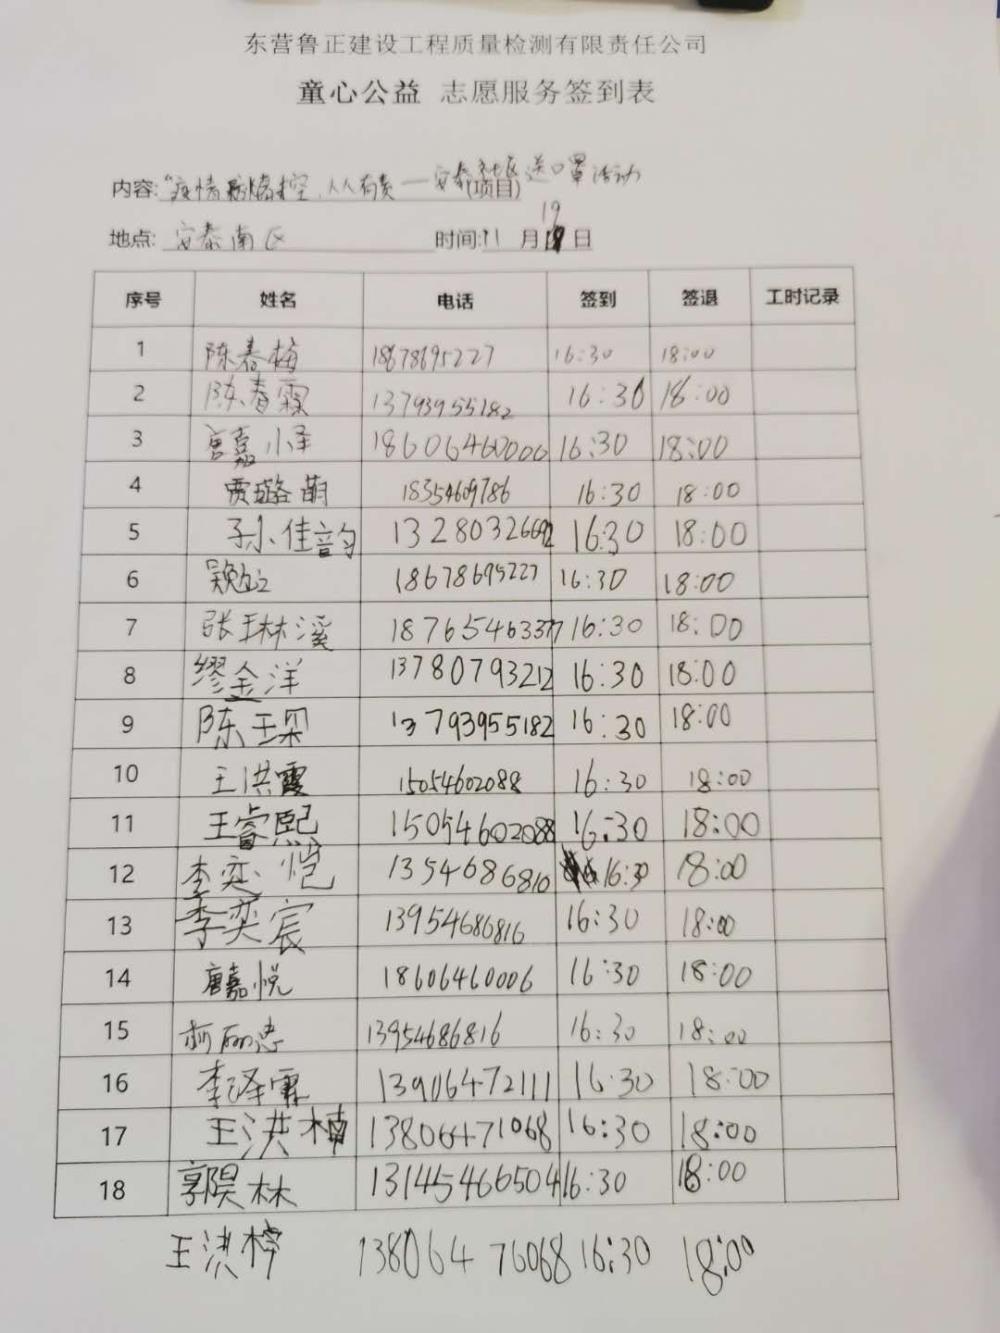 东营鲁正建设工程质量检测有限责任公司
童心公益 志愿服务签到表
内容:"疫情防控,人人有责——安泰社区送口罩活动 (项目)
地点: 安泰南区 时间:11 月 19 日
序号 姓名 电话 签到 签退 工时记录
1 陈春梅 18678695227 16:30 18:00
2 陈春霖 13793955182 16:30 18:00
3 唐嘉小泽 18606460006 16:30 18:00
4 贾璐萌 18354609786 16:30 18:00
5 孙佳韵 13280326692 16:30 18:00
6 18678695227 16:30 18:00
7 张琳溪 18765463377 16:30 18:00
8 缪金洋 13780793212 16:30 18:00
9 陈琛 13793955182 16:30 18:00
10 王洪霞 15054602088 16:30 18:00
11 王睿熙 15054602088 16:30 18:00
12 李奕恺 1354686810 16:30 18:00
13 李奕宸 13954686816 16:30 18:00
14 唐嘉悦 18606460006 16:30 18:00
15 13954686816 16:30 18:00
16 李泽霖 13906472111 16:30 18:00
17 王洪楠 13806471068 16:30 18:00
18 郭昊林 13145466504 16:30 18:00
王洪梓 13806476068 16:30 18:00